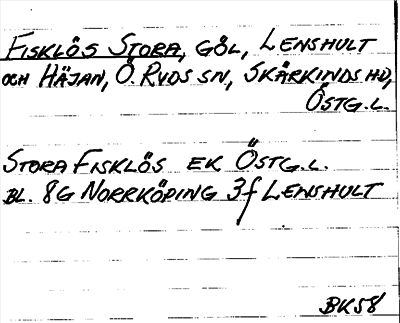 FISKLÖS STORA, GÖL, LENSHULT
OCH HÄJAN, Ö. RYDS SN, SKÄRKINDS HD,
ÖSTG.L.
STORA FISKLÖS EK ÖSTG.L.
BL. 8G NORRKÖPING 3f LENSHULT
BK58